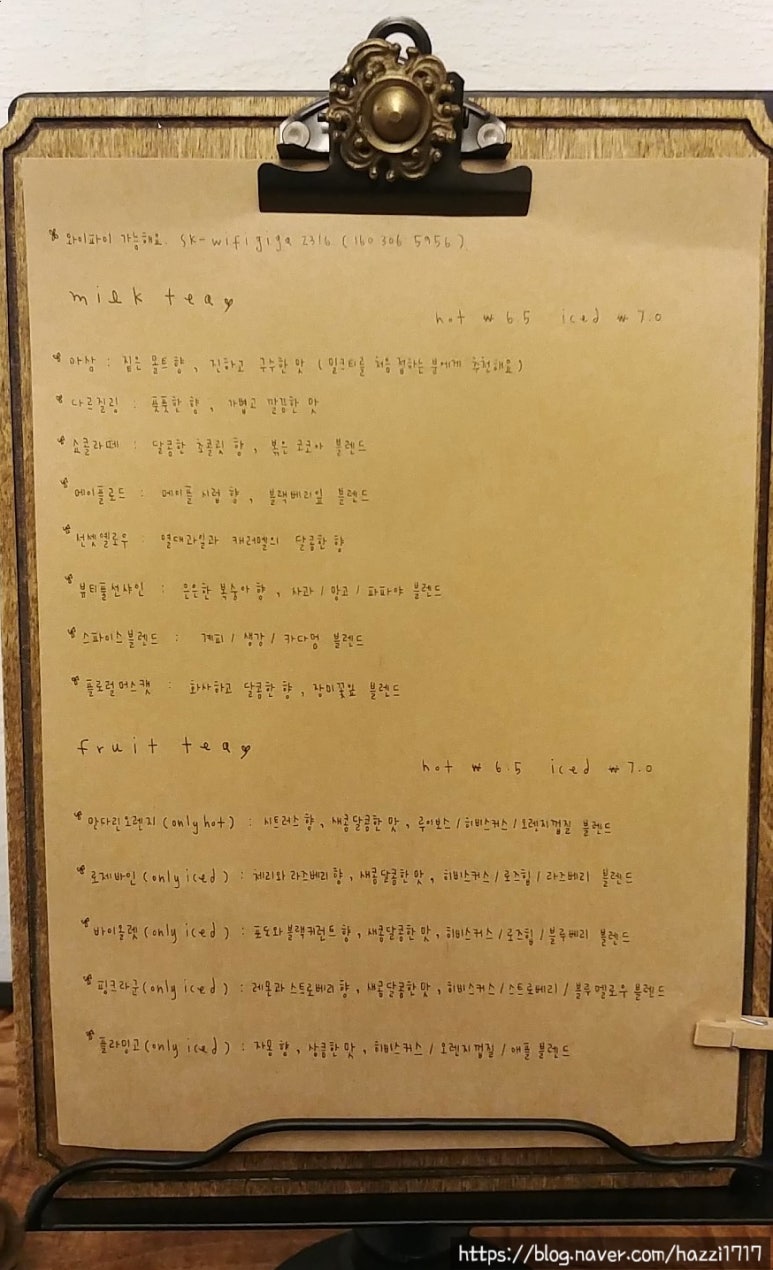 와이파이 가능해요. sk-wifigiga 2316 (160306 5956)
milk tea
hot ₩ 6.5 iced ₩ 7.0
아삼 : 짙은 몰트향, 진하고 구수한 맛 (밀크티를 처음 접하는 분에게 추천해요)
다르질링 : 풋풋한 향, 가볍고 깔끔한 맛
쇼콜라떼 : 달콤한 초콜릿 향, 볶은 코코아 블렌드
메이플로드 : 메이플 시럽 향, 블랙베리잎 블렌드
선셋옐로우 : 열대과일과 캐러멜의 달콤한 향
뷰티풀선샤인 : 은은한 복숭아 향, 사과 / 망고 / 파파야 블렌드
스파이스블렌드 : 계피 / 생강 / 카다멈 블렌드
플로럴머스캣 : 화사하고 달콤한 향, 장미꽃잎 블렌드
fruit tea
hot ₩ 6.5 iced ₩ 7.0
만다린오렌지 (only hot) : 시트러스 향, 새콤달콤한 맛, 루이보스 / 히비스커스 / 오렌지껍질 블렌드
로제바인 (only iced) : 체리와 라즈베리 향, 새콤달콤한 맛, 히비스커스 / 로즈힙 / 라즈베리 블렌드
바이올렛 (only iced) : 포도와 블랙커런트 향, 새콤달콤한 맛, 히비스커스 / 로즈힙 / 블루베리 블렌드
핑크라군 (only iced) : 레몬과 스트로베리 향, 새콤달콤한 맛, 히비스커스 / 스트로베리 / 블루멜로우 블렌드
플라밍고 (only iced) : 자몽 향, 상큼한 맛, 히비스커스 / 오렌지껍질 / 애플 블렌드
https://blog.naver.com/hazzi1717